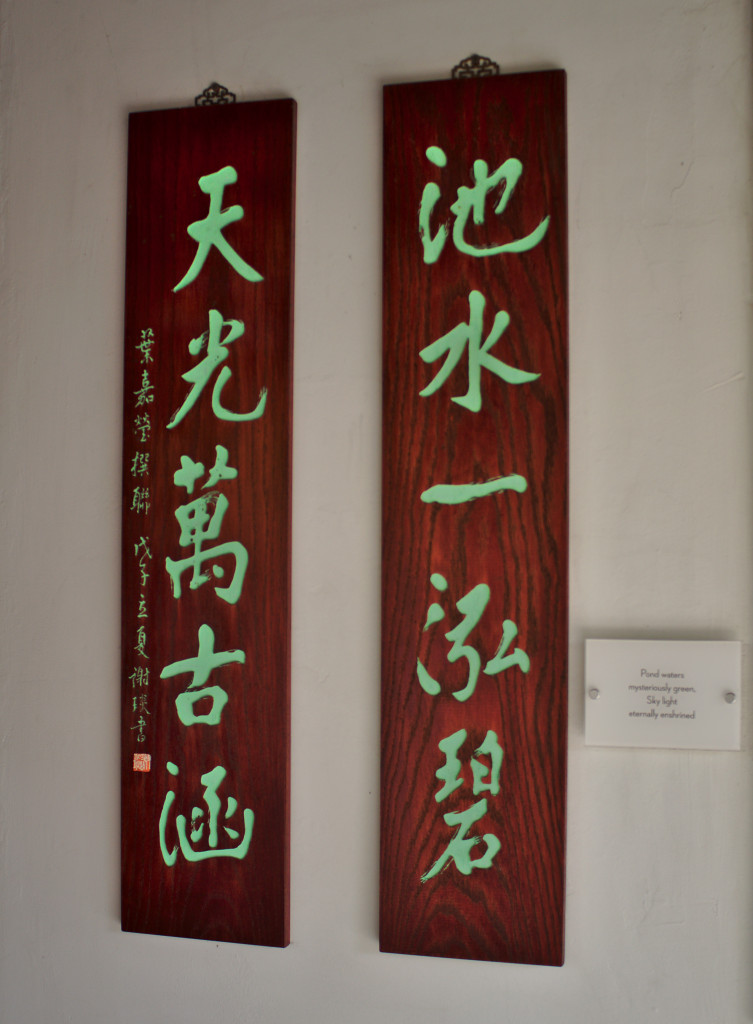 池水一泓碧
天光萬古涵
葉嘉瑩撰聯 戊子立夏謝琰書
Pond waters
mysteriously green,
Sky light
eternally enshrined